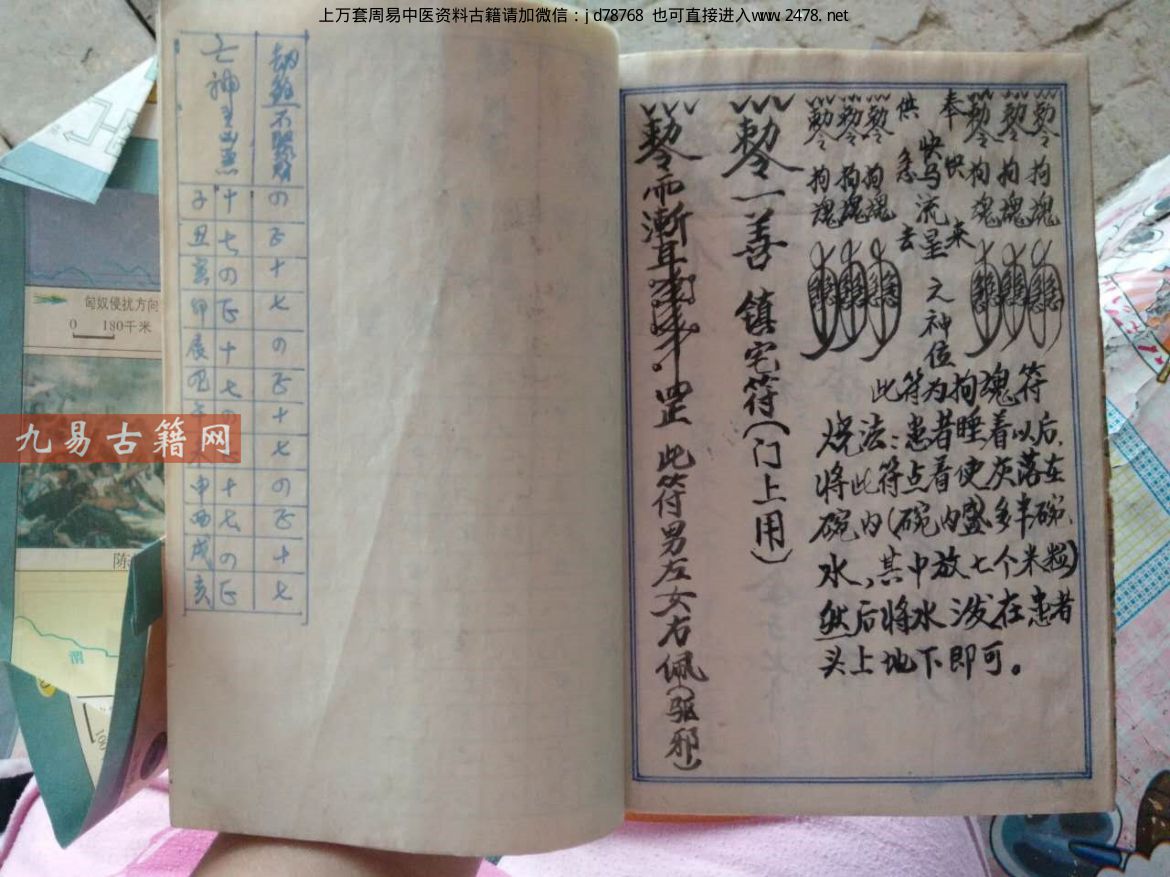 上万套周易中医资料古籍请加微信：jd78768 也可直接进入www.2478.net
九易古籍网
亡神
子 十 の
丑 七 正
寅 の 十
卯 正 七
辰 十 の
巳 七 正
十
七
申 十 の
酉 七 正
戌 の 十
亥 正 七
匈奴侵扰方向
0 180千米
陈
渭
敕令 敕令 敕令
拘魂 拘魂 拘魂
奉
供
快马流星
快来
急去
元神位
敕令 敕令 敕令
拘魂 拘魂 拘魂
此符为拘魂符
烧法：患者睡着以后，
将此符点着使灰落在
碗内（碗内盛多半碗
水，其中放七个米粒）
然后将水泼在患者
头上地下即可。
敕令一善 镇宅符（门上用）
敕令 此符男左女右佩（驱邪）